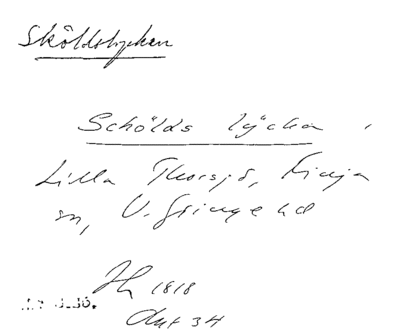 Sköldslyckan
Schölds lycka,
Lilla Thorsjö, Linja
sn, V. Göinge hd
Jb 1818
Akt 34